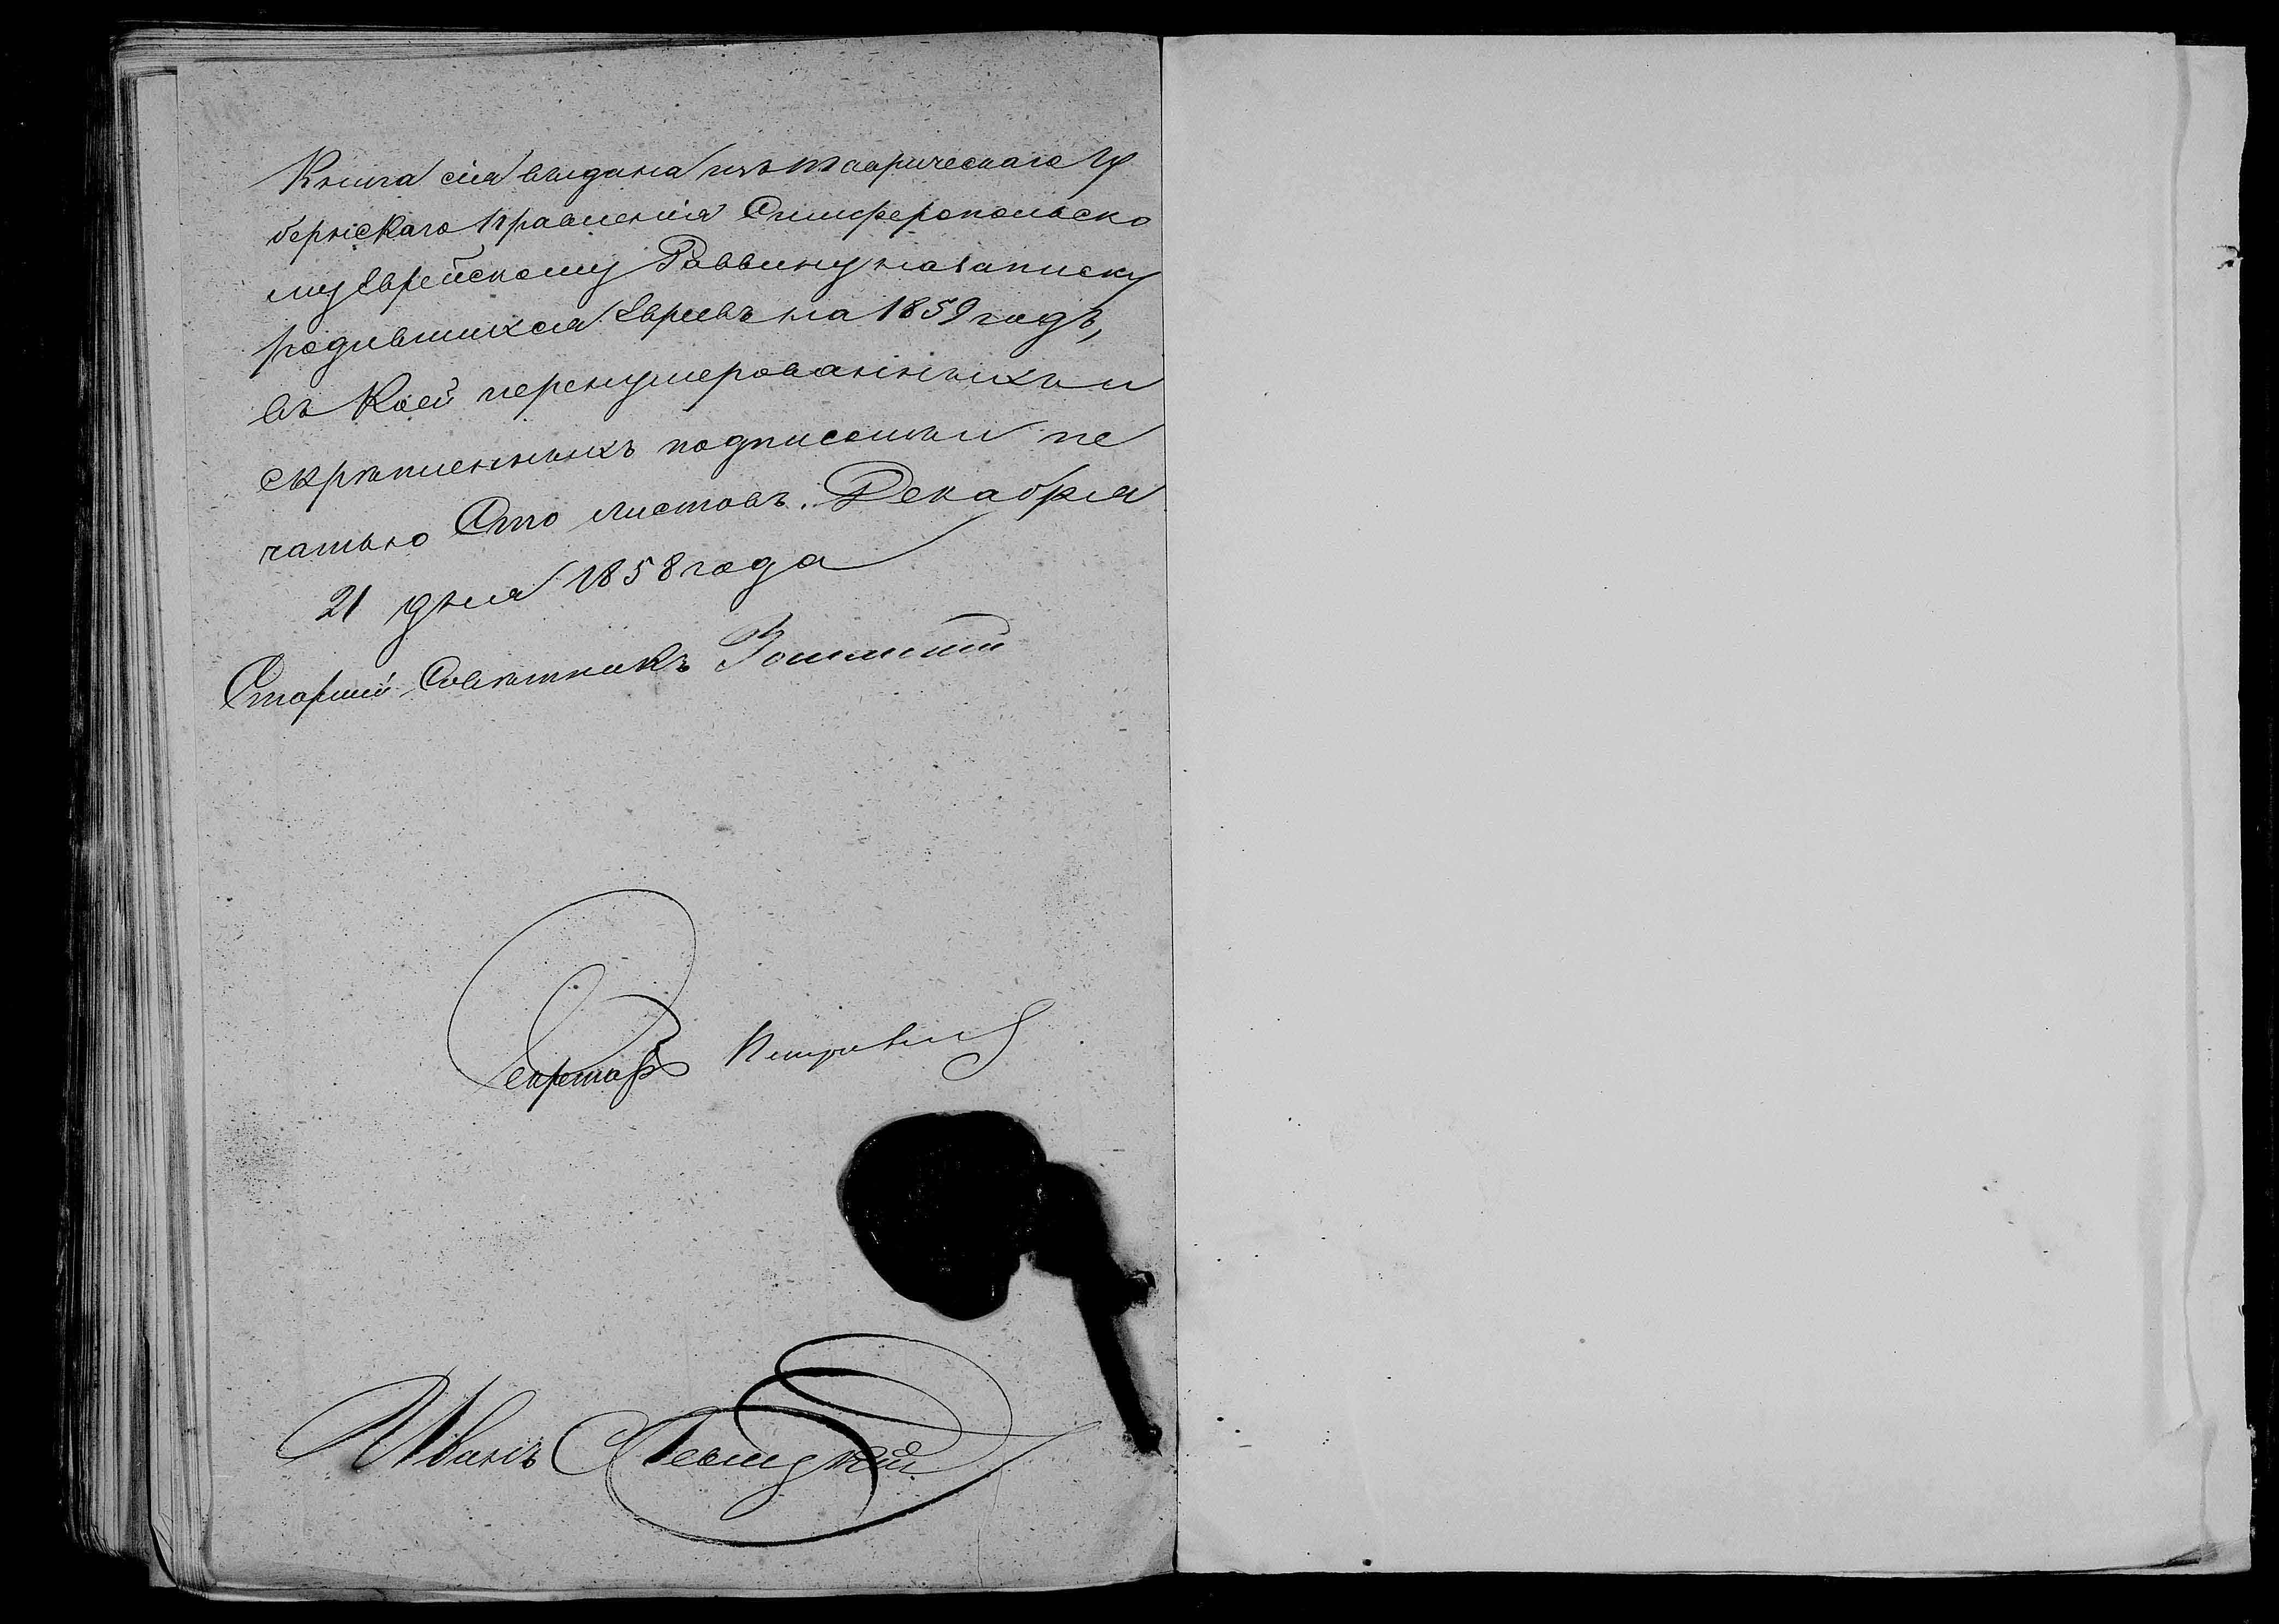 Книга сія выдана изъ Таврическаго Гу
бернскаго Правленія Симферопольско
му Еврейскому Раввину на записку
родившихся Евреевъ на 1859 годъ,
въ коей перенумерованныхъ и
скрѣпленныхъ подписомъ и пе
чатью Сто листовъ. Декабря
21 дня 1858 года
Старшій Совѣтникъ
Секретарь
Иванъ Левицкій